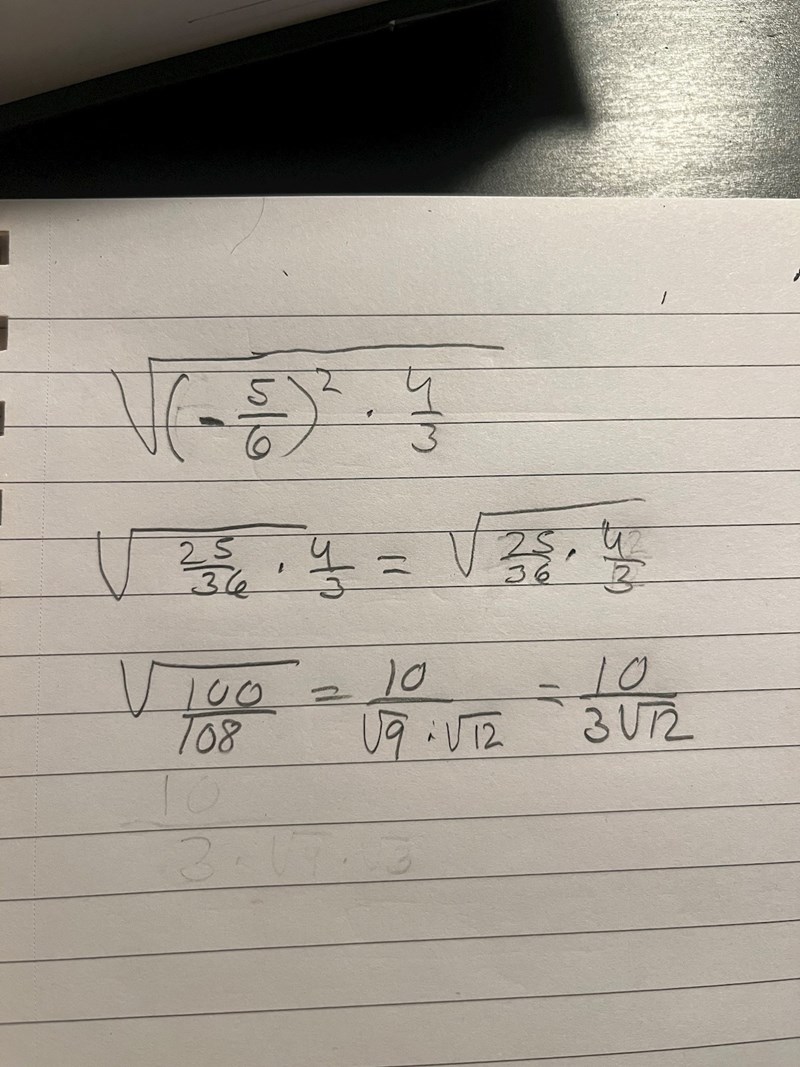 √((-5/6)² · 4/3)
√(25/36 · 4/3) = √(25/36 · 4/3)
√(100/108) = 10/(√9 · √12) = 10/(3√12)
10/(3 · √4 · √3)